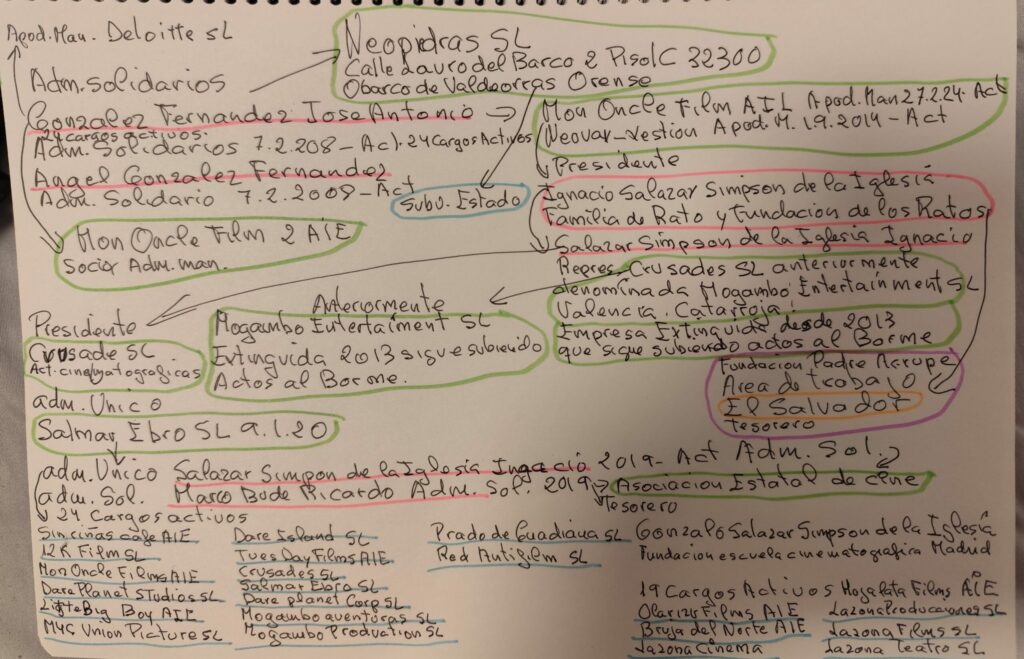 Apod. Man. Deloitte SL
Adm. Solidarios
Gonzalez Fernandez Jose Antonio
24 cargos activos.
Adm. Solidarios 7.2.208 - Act. 24 Cargos Activos
Angel Gonzalez Fernandez
Adm. Solidario 7.2.2009 - Act
Subv. Estado
Mon Oncle Film 2 AIE
Socix Adm. man.
Neopidras SL
Calle Lauro del Barco 2 Piso 1C 32300
Obarco de Valdeorras Orense
Mon Oncle Film AIL Apod. Man 27.2.24. Act
Neovar-vestion Apod. M. 1.9.2014 - Act
Presidente
Ignacio Salazar Simpson de la Iglesia
Familia de Rato y Fundacion de los Ratos
Salazar Simpson de la Iglesia Ignacio
Repres. Crusades SL anteriormente
denominada Mogambo Entertainment SL
Valencia. Catarroja
Empresa Extinguida desde 2013
que sigue subiendo actos al Borme
Fundacion Padre Arrupe
Area de trabajo
El Salvador
Tesorero
Anteriormente
Mogambo Entertaiment SL
Extinguida 2013 sigue subiendo
Actos al Borme.
Presidente
Crusade SL.
Act. cinematograficas
adm. Unico
Salmar Ebro SL 9.1.20
adm. Unico Salazar Simpon de la Iglesia Ingacio 2019 - Act Adm. Sol.
adm. Sol. Marco Bode Ricardo Adm. Sol. 2019 Asociacion Estatal de cine
Tesorero
24 Cargos activos
Sin riñas cafe AIE
12K Film SL
Mon Oncle Films AIE
Dare Planet Studios SL
Litte Big Boy AIE
M4C Union Picture SL
Dare Island SL
Tues Day Films AIE
Crusades SL
Salmar Ebro SL
Dare planet Corp SL
Mogambo aventuras SL
Mogambo Production SL
Prado de Guadiana SL
Red Antifilm SL
Gonzalo Salazar Simpson de la Iglesia
Fundacion escuela cinematografica Madrid
19 Cargos Activos Mogakata Films AIE
Olarizu Films AIE
Bruja del Norte AIE
Lazona Cinema
Lazona Producciones SL
Lazona Films SL
Lazona Teatro SL